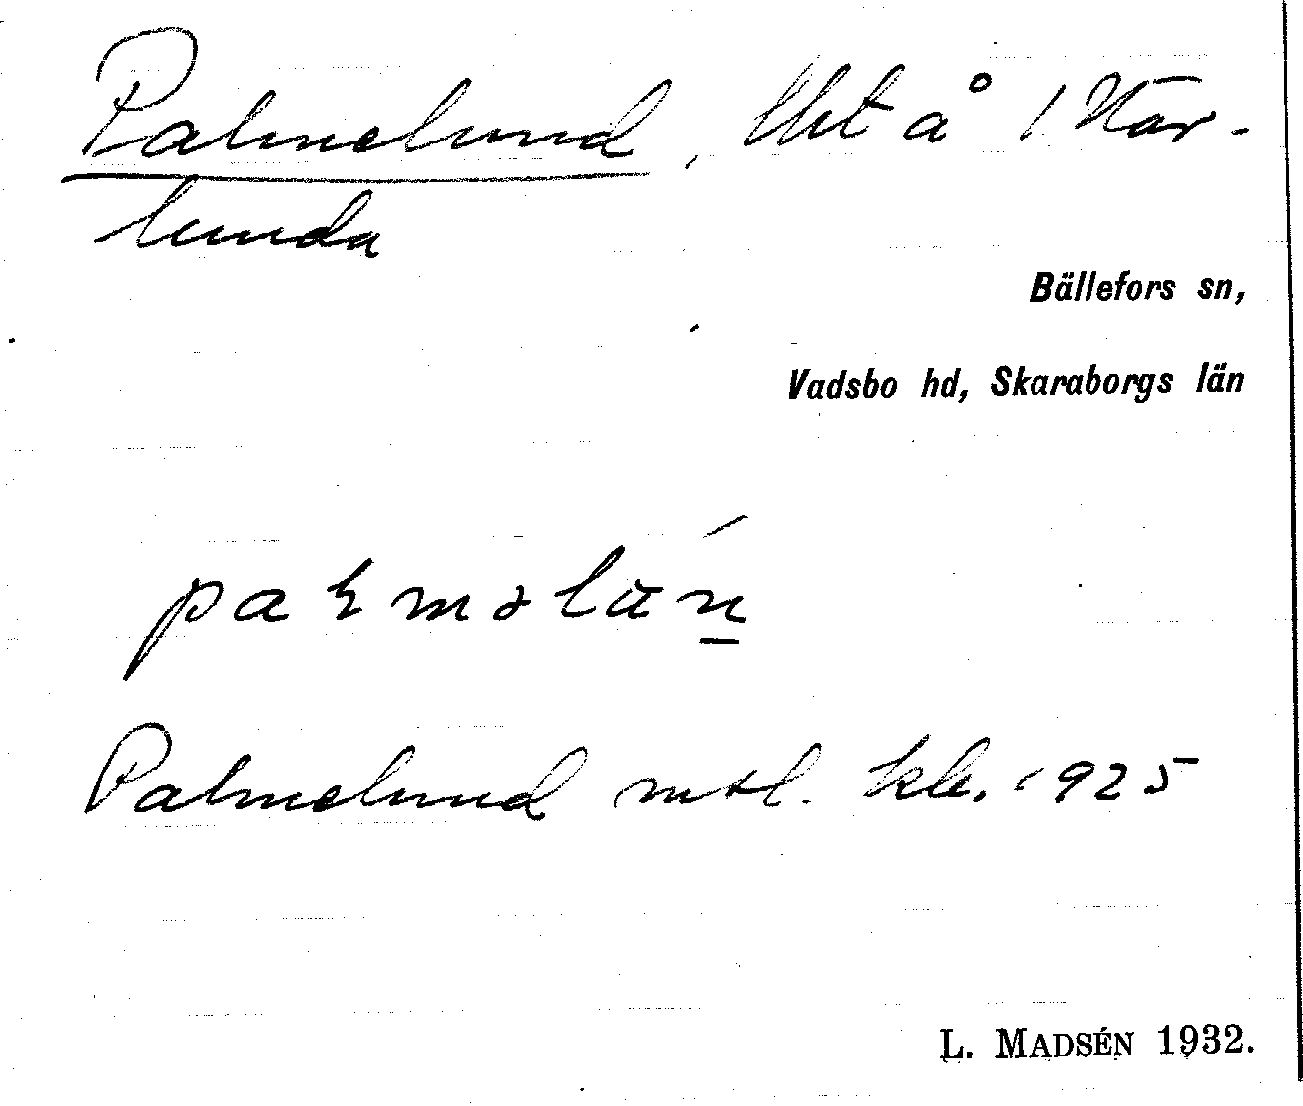 Palmelund, lht å 1 Här-
lunda
Bällefors sn,
Vadsbo hd, Skaraborgs län
Palmelund mtl. kk. 1925
L. MADSÉN 1932.